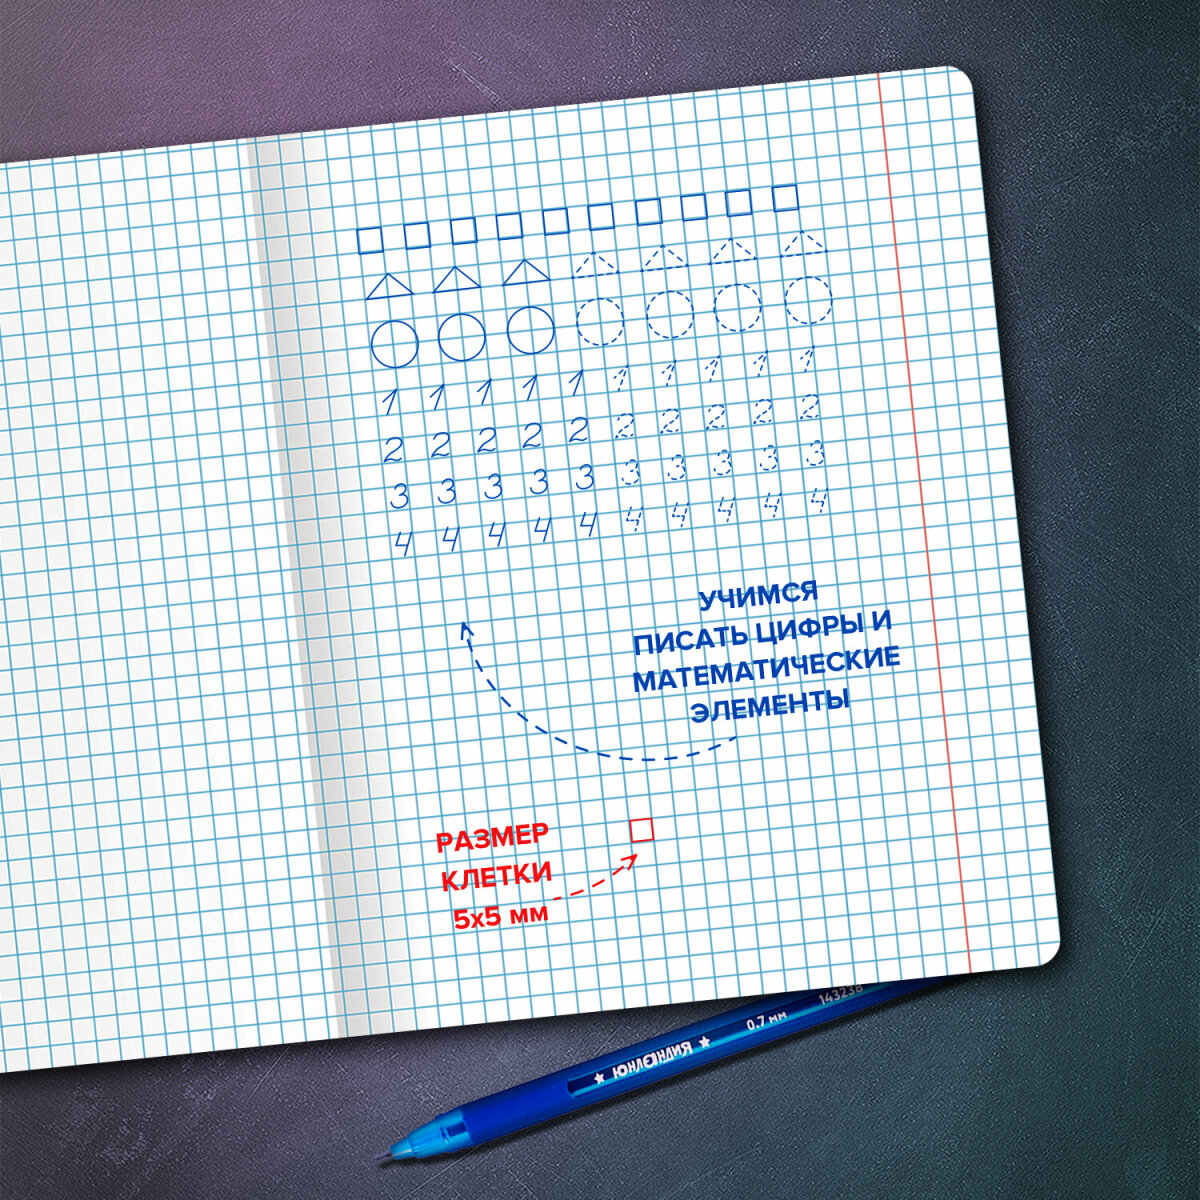 1 1 1 1 1 1 1 1 1 1
2 2 2 2 2 2 2 2 2 2
3 3 3 3 3 3 3 3 3 3
4 4 4 4 4 4 4 4 4 4
УЧИМСЯ
ПИСАТЬ ЦИФРЫ И
МАТЕМАТИЧЕСКИЕ
ЭЛЕМЕНТЫ
РАЗМЕР
КЛЕТКИ
5х5 мм
★ ЮНЛАНДИЯ ★ 0.7 мм 143238